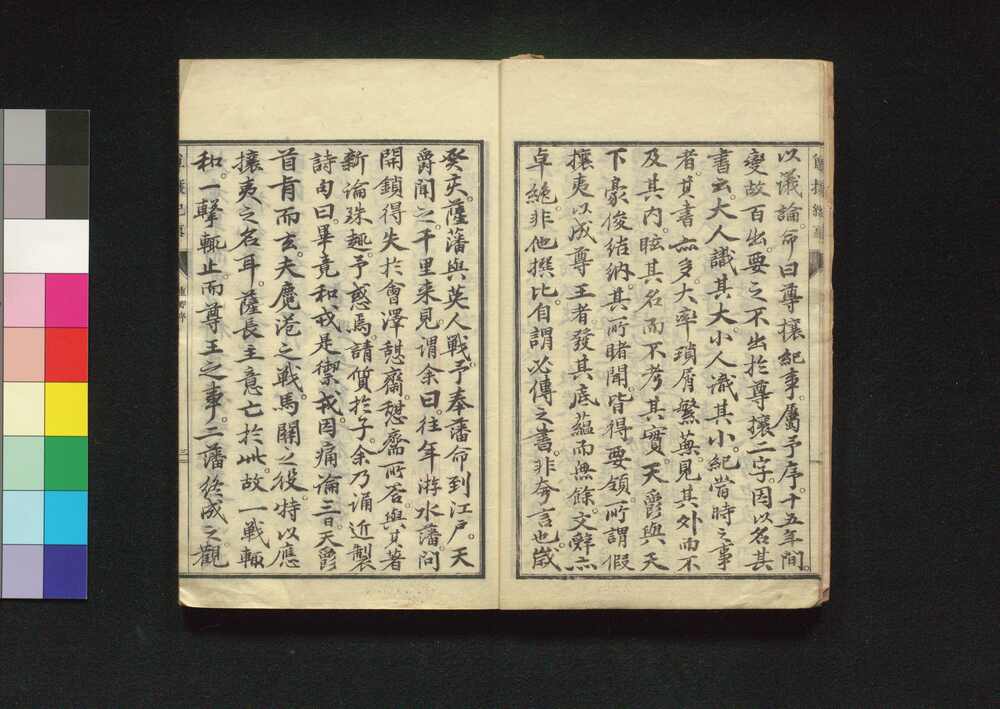 以議論。命曰尊攘紀事。屬予序。十五年間。
變故百出。要之不出於尊攘二字。因以名其
書云。大人識其大。小人識其小。紀當時之事
者。其書亦多。大率瑣屑繁蕪。見其外而不
及其内。眩其名而不考其實。天爵與天
下豪俊結納。其所睹聞。皆得要領。所謂假
攘夷以成尊王者。發其底蘊而無餘。文辭亦
卓絶非他撰比。自謂必傳之書。非夸言也。歲
癸亥。薩藩與英人戰。予奉藩命到江戶。天
爵聞之。千里來見。謂余曰。往年游水藩。問
開鎖得失於會澤憇齋。憇齋所否。與其著
新論殊趣。予惑焉。請質於子。余乃誦近製
詩句曰。畢竟和戎是禦戎。因痛論三日。天爵
首肯而去。夫魔港之戰。馬關之役。特以應
攘夷之名耳。薩長主意亡於此。故一戰輙
和。一擊輙止。而尊王之事。二藩終成之。觀